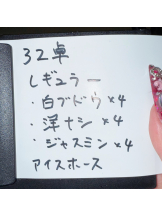 32卓
レギュラー
・白ブドウ×4
・洋ナシ×4
・ジャスミン×4
アイスホース